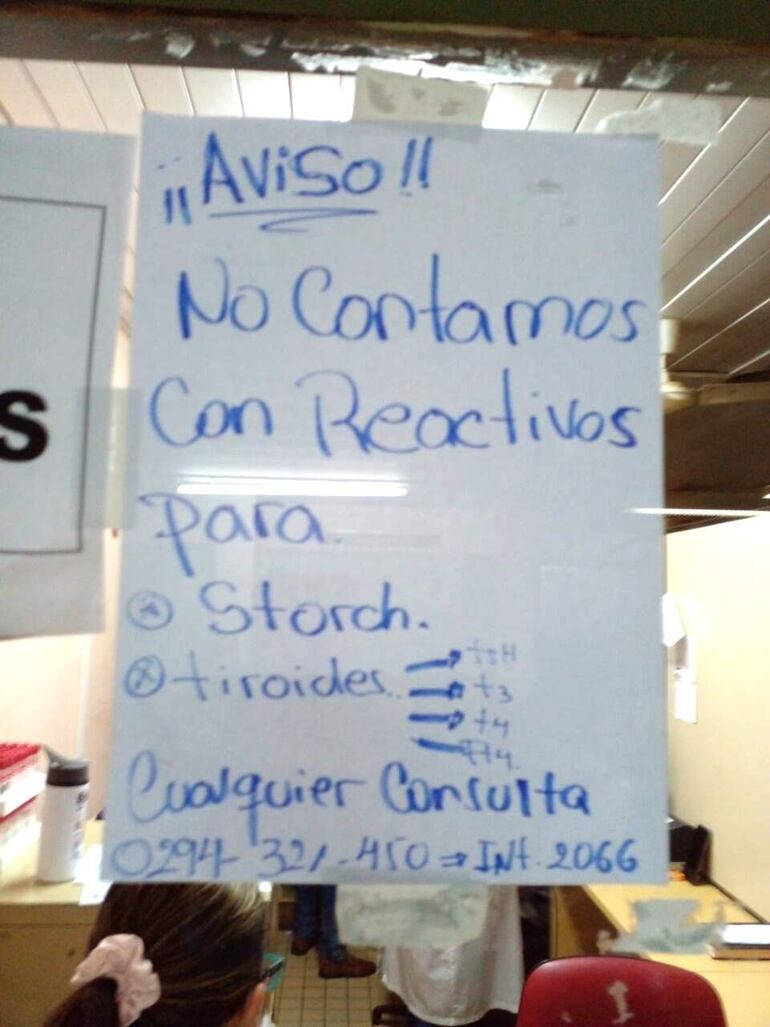 ¡¡AViSo!!
No Contamos
Con Reactivos
para.
S
Storch.
tiroides.. → tsH
→ t3
→ t4
Ft4.
Cualquier Consulta
0294- 321-450 ⇒ INt. 2066